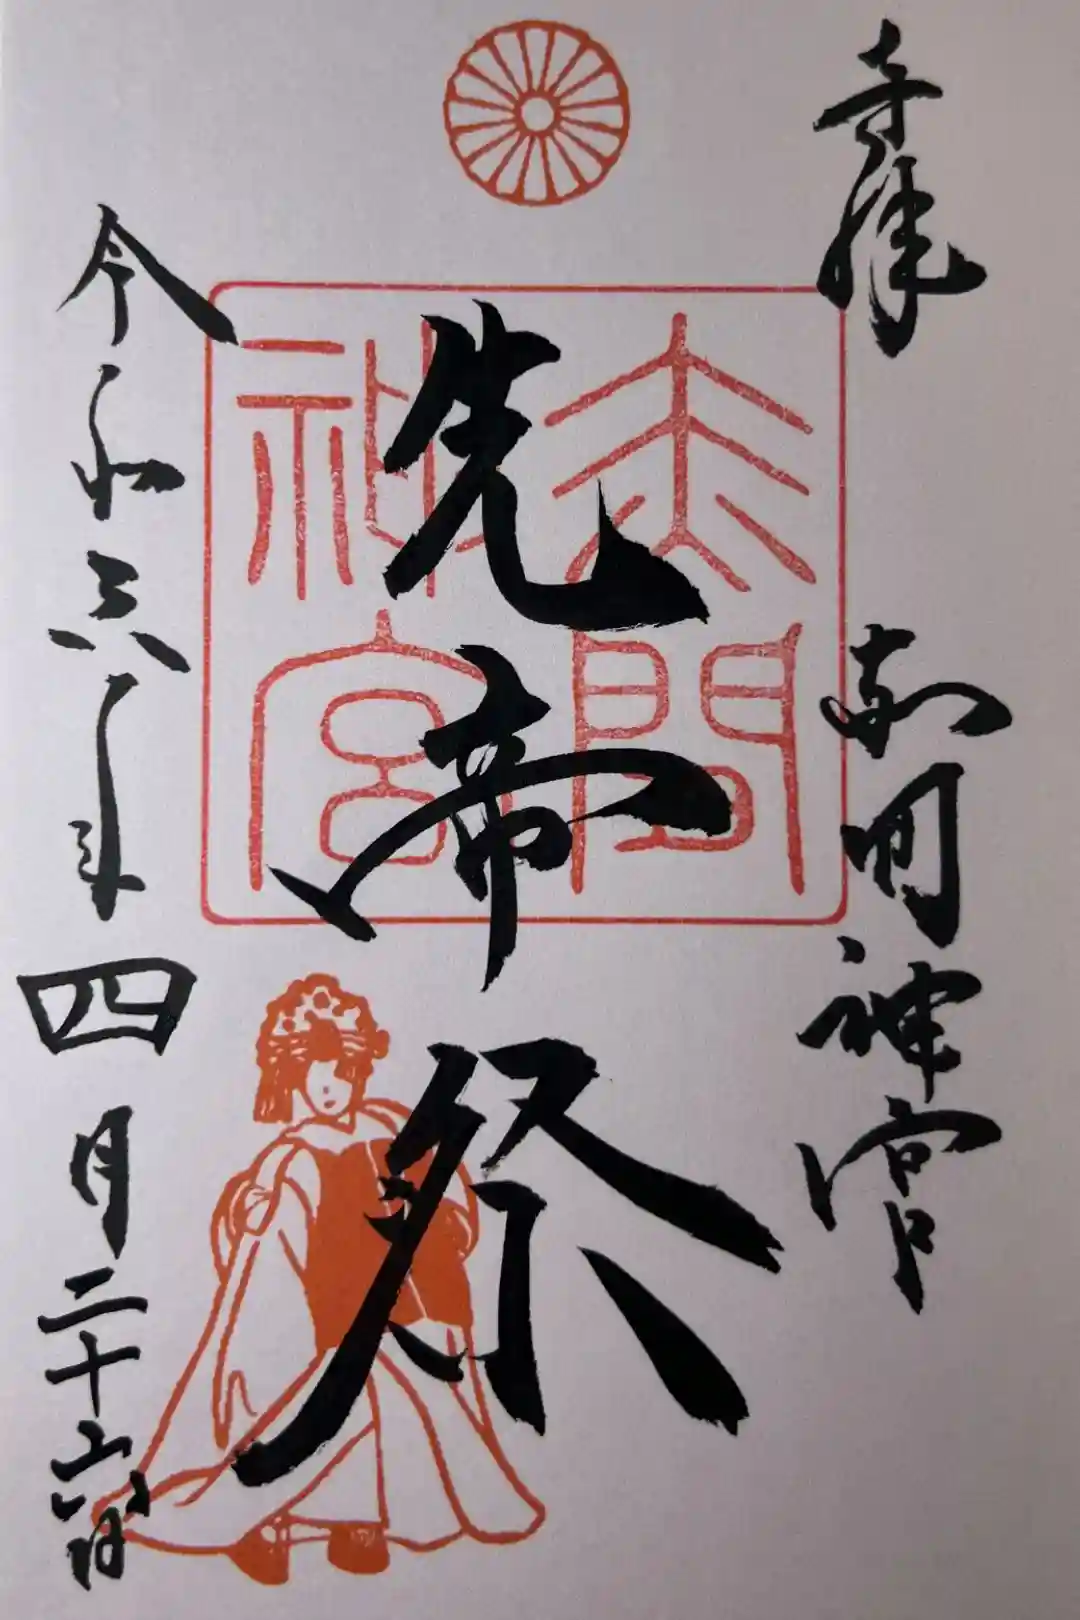 奉拝
赤間神宮
先帝祭
赤間神宮
令和六年四月二十六日